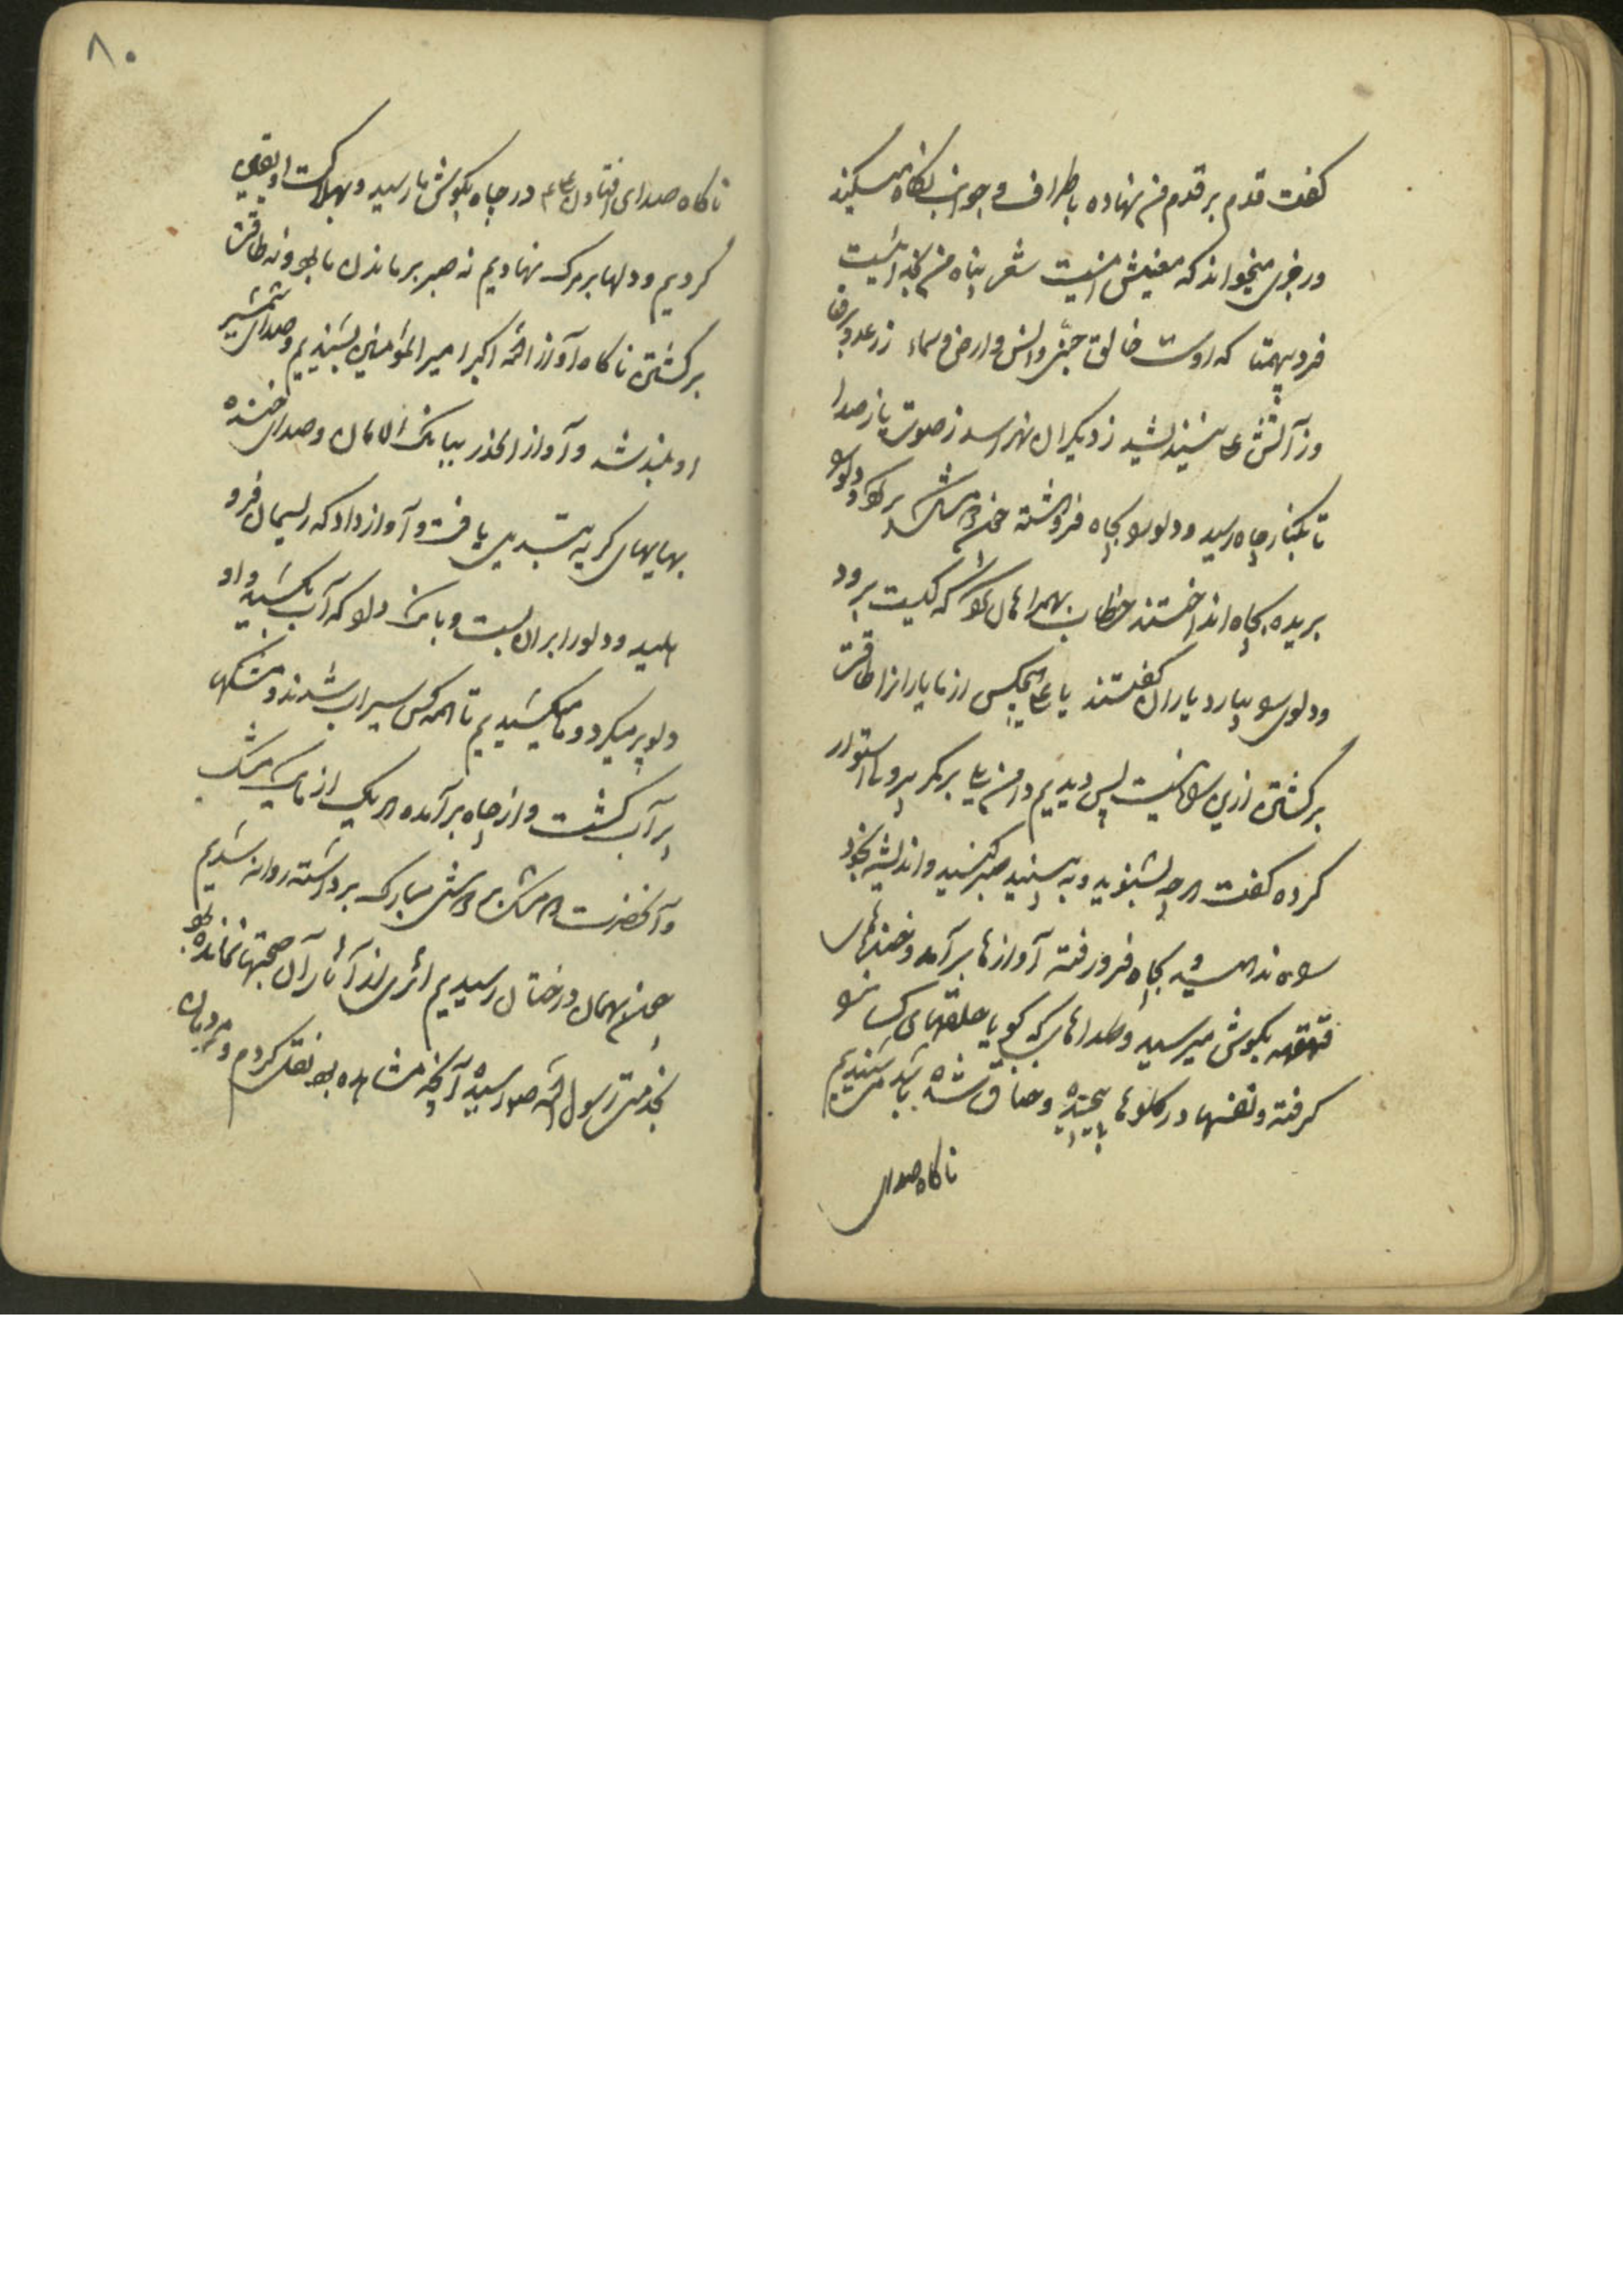 کفت قدم بر قدم من نهاده باطراف و جوانب نکاه مکنید
و رجزی میخواند که معنیش اینست شعر پناه من بخدائیست
فرد بیهمتا که اوست خالق جن و انس و ارض و سماء ز رعد و برق
وز آتش نشید ز دیکران نهراسد ز صوت یا ز صدا
تا بکنار چاه رسید و دلو بچاه فروهشته چون مشک پر دلو
بریده بچاه انداختند خطاب بهمراهان که کیست برود
و دلوی بیارد یاران کفتند یا علی هیچکس از ما یارانرا طاقت
برکشتن ازین نیست پس دیدیم دامن بر کمر استوار
کرده کفت هر چه بشنوید و به بینید صبر کنید و اندیشه بخود
راه ندهید و بچاه فرو رفته آوازها برآمد و خندهای
قهقهه بکوش میرسید و صداهای که کویا حلقهای کسانرا
کرفته و نفسها در کلوها پیچیده و خناق شده باشد می شنیدیم
ناکاه صدای
۸۰
ناکاه صدای افتادن علی در چاه بکوش ما رسید و بهلاکت او یقین
کردیم و دلها بر مرک نهادیم نه صبر بر ماندن ما بود و نه طاقت
برکشتن ناکاه آواز الله اکبر امیر المؤمنین بشنیدیم و صدای شمشیر
او بلند شد و آواز الحذر ببانک الامان و صدای خنده
بهایهای کریه تبدیل یافت و آواز داد که ریسمان فرو
هلید و دلو را بران بست و بانک دلو که آب بکشید و او
دلو پر میکرد و ما میکشیدیم تا همه کس سیراب شدند و مشکها
پر آب کشت و از چاه برآمده هر یک از ما یک مشک
و آنحضرت دو مشک بر دوش مبارک برداشته روانه شدیم
چون بهمان درختان رسیدیم اثری از آثار آن صیحتها نمانده بود
بخدمت رسول الله رسیده آنچه مشاهده بود نقل کردم و